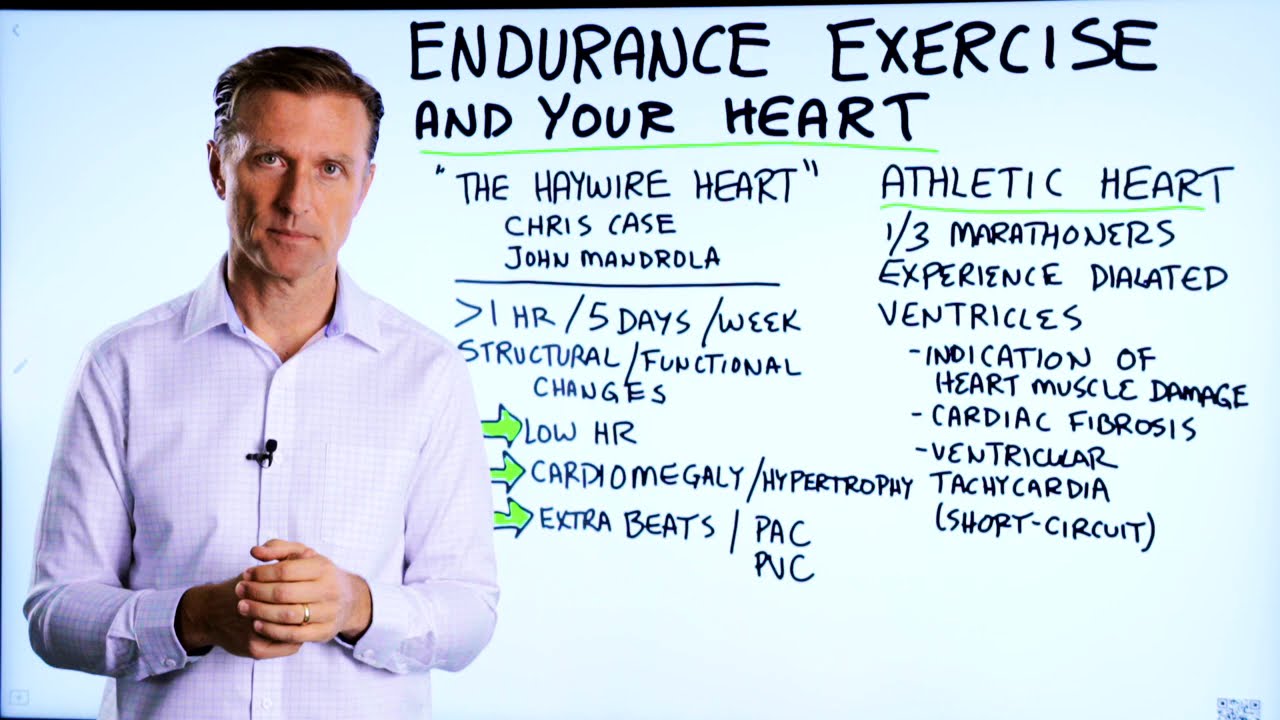 ENDURANCE EXERCISE
AND YOUR HEART
"THE HAYWIRE HEART"
CHRIS CASE
JOHN MANDROLA
>1 HR/5 DAYS/WEEK
STRUCTURAL/FUNCTIONAL
CHANGES
LOW HR
CARDIOMEGALY/HYPERTROPHY
EXTRA BEATS / PAC
PVC
ATHLETIC HEART
1/3 MARATHONERS
EXPERIENCE DIALATED
VENTRICLES
-INDICATION OF
HEART MUSCLE DAMAGE
-CARDIAC FIBROSIS
-VENTRICULAR
TACHYCARDIA
(SHORT-CIRCUIT)